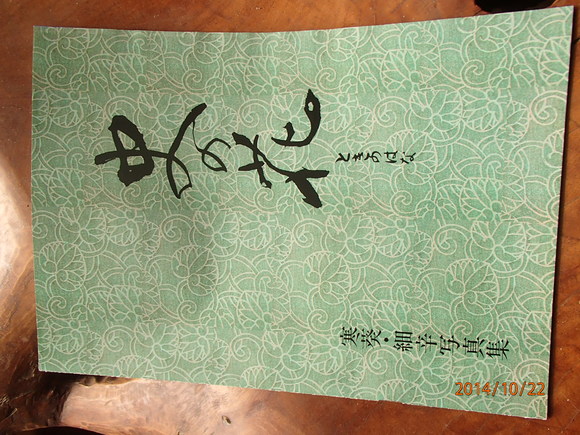 史の花
ときのはな
寒葵・細辛写真集
2014/10/22